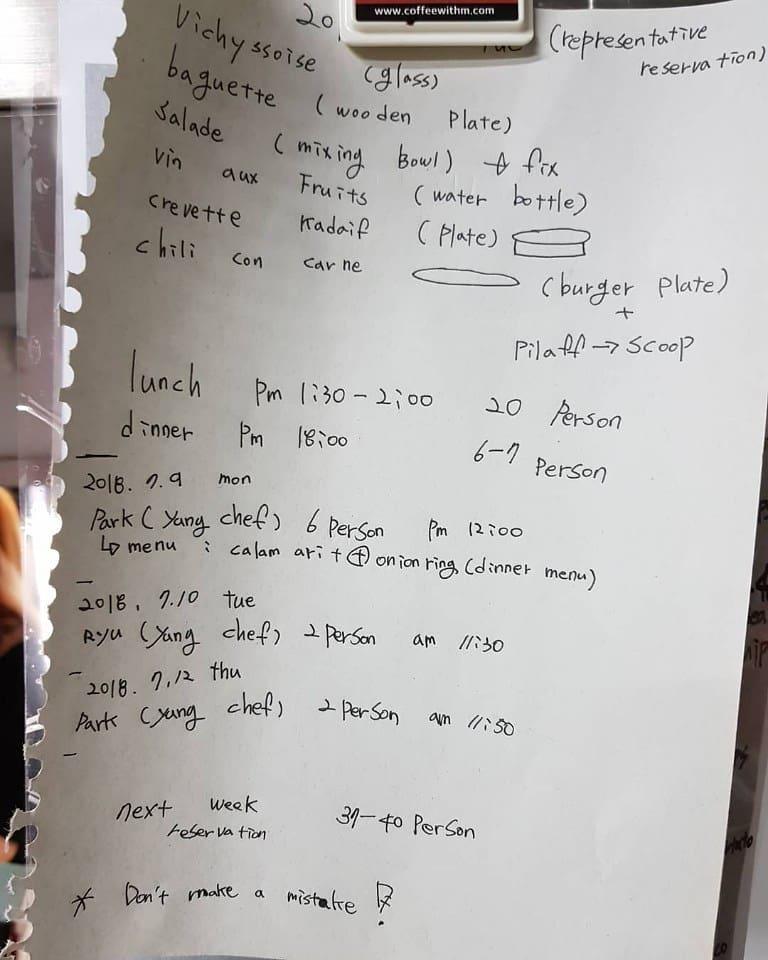 www.coffeewithm.com
20 (representative
reservation)
Vichyssoise (glass)
baguette (wooden Plate)
Salade (mixing Bowl) + fix
Vin aux Fruits (water bottle)
Crevette Kadaif (Plate)
Chili con carne (burger Plate)
+
Pilaff → Scoop
lunch Pm 1:30 - 2:00 20 Person
dinner Pm 18:00 6-7 Person
2018. 7.9 mon
Park (Yang chef) 6 Person Pm 12:00
↳ menu : calamari + onion ring (dinner menu)
2018. 7.10 tue
Ryu (Yang chef) 2 Person am 11:30
2018. 7.12 thu
Park (Yang chef) 2 Person am 11:50
next week
reservation 37-40 Person
* Don't make a mistake